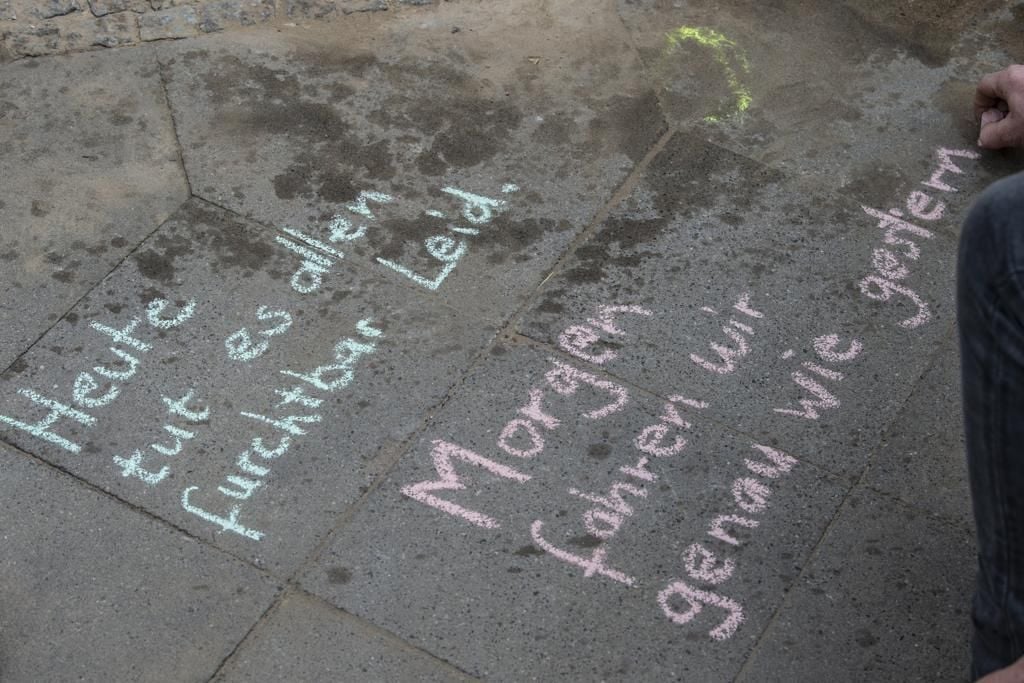 Heute
tut es allen
furchtbar Leid.
Morgen
fahren wir
genau wie gestern